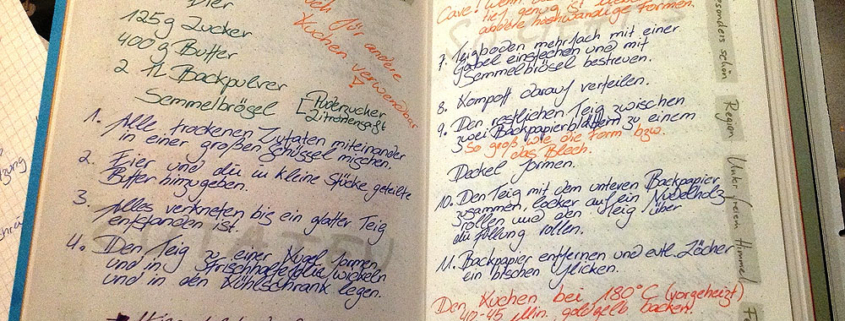 Eier
125g Zucker
400g Butter
2 TL Backpulver
Semmelbrösel
[Puderzucker
Zitronensaft
für andere
Kuchen verwendbar
1. Alle trockenen Zutaten miteinander
in einer großen Schüssel mischen.
2. Eier und die in kleine Stücke geteilte
Butter hinzugeben.
3. Alles verkneten bis ein glatter Teig
entstanden ist.
4. Den Teig zu einer Kugel formen
und in Frischhaltefolie wickeln
und in den Kühlschrank legen.
Cave! wenn
tief genug ist
hochwandige Formen.
7. Teigboden mehrfach mit einer
Gabel einstechen und mit
Semmelbrösel bestreuen.
8. Kompott darauf verteilen.
9. Den restlichen Teig zwischen
zwei Backpapierblättern zu einem
So groß wie die Form bzw.
das Blech.
Deckel formen.
10. Den Teig mit dem unteren Backpapier
zusammen, locker auf ein Nudelholz
rollen und den Teig über
die Füllung rollen.
11. Backpapier entfernen und evtl. Löcher
ein bischen flicken.
Den Kuchen bei 180°C (vorgeheizt)
40-45 Min. goldgelb backen.
besonders schön
Region
Unter freiem Himmel